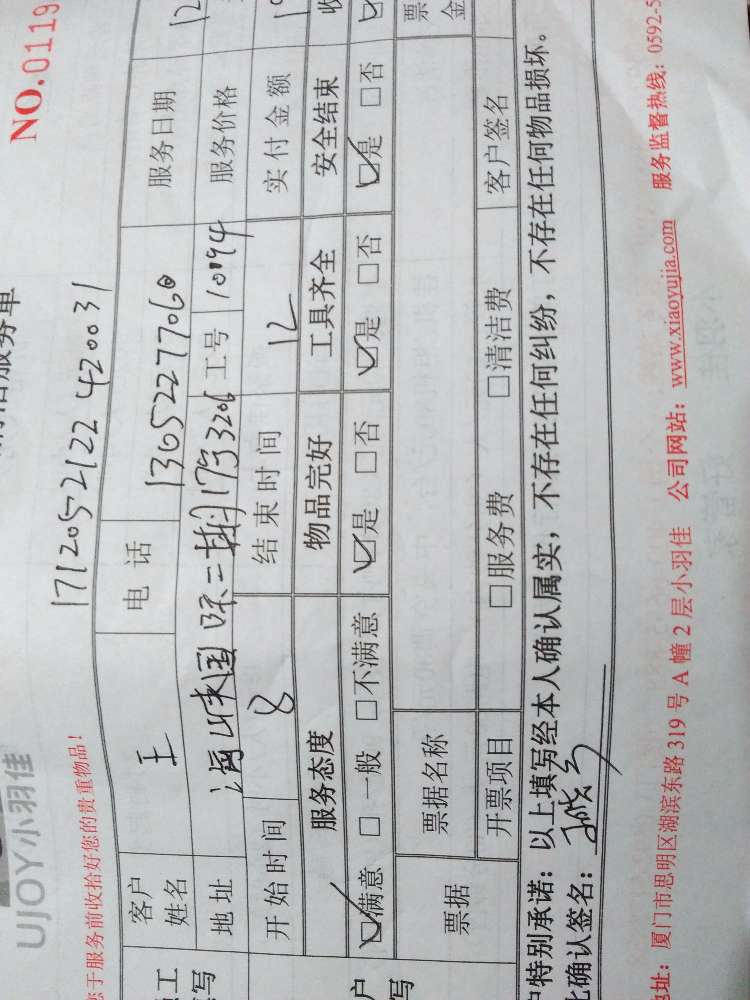 UJOY小羽佳
NO.0119
清洁服务单
您于服务前收拾好您的贵重物品！
1712052122420031
客户姓名 王 电话 13052277060 服务日期 12
地址 17号3206 工号 10194 服务价格
开始时间 8 结束时间 12 实付金额
服务态度 物品完好 工具齐全 安全结束
☑满意 □一般 □不满意 ☑是 □否 ☑是 □否 ☑是 □否
票据 票据名称
开票项目 □服务费 □清洁费 客户签名
户特别承诺：以上填写经本人确认属实，不存在任何纠纷，不存在任何物品损坏。
此确认签名：
地址：厦门市思明区湖滨东路319号A幢2层小羽佳 公司网站：www.xiaoyujia.com 服务监督热线：0592-5